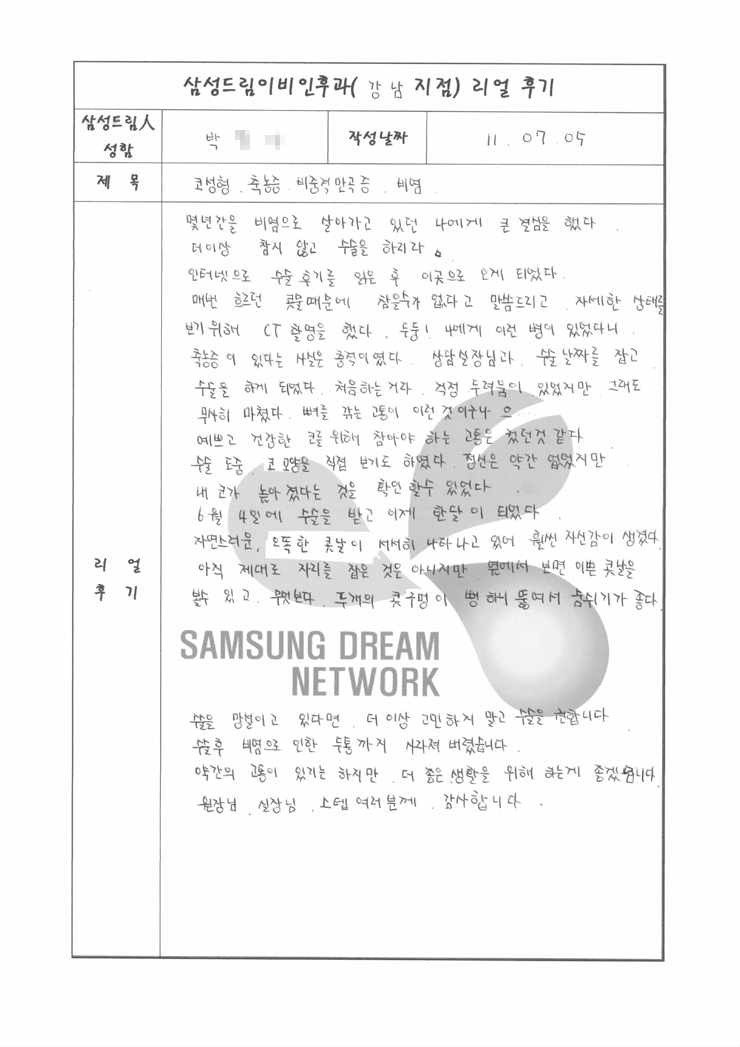 삼성드림이비인후과( 강남 지점) 리얼 후기
삼성드림人
성함
박
작성날짜
11. 07. 05
제 목
코성형. 축농증. 비중격만곡증. 비염.
리 얼
후 기
몇년간을 비염으로 살아가고 있던 나에게 큰 결심을 했다.
더이상 참지 않고 수술을 하리라.
인터넷으로 수술 후기를 읽은 후 이곳으로 오게 되었다.
매번 흐르던 콧물때문에 참을수가 없다고 말씀드리고. 자세한 상태를
보기위해 CT 촬영을 했다. 두둥! 나에게 이런 병이 있었다니.
축농증이 있다는 사실은 충격이였다. 상담실장님과. 수술날짜를 잡고
수술을 하게 되었다. 처음하는거라. 걱정 두려움이 있었지만 그래도
무사히 마쳤다. 뼈를 깎는 고통이 이런 것이구나 으...
예쁘고 건강한 코를 위해 참아야 하는 고통은 컸던것 같다
수술 도중. 코 모양을 직접 보기도 하였다. 정신은 약간 없었지만
내 코가 높아졌다는 것을 확인할수 있었다.
6월 4일에 수술을 받고 이제 한달이 되었다.
자연스러운, 오똑한 콧날이 서서히 나타나고 있어 훨씬 자신감이 생겼다.
아직 제대로 자리를 잡은 것은 아니지만 옆에서 보면 이쁜 콧날을
볼수 있고. 무엇보다. 두개의 콧구멍이 뻥하니 뚫여서 숨쉬기가 좋다.
SAMSUNG DREAM
NETWORK
수술을 망설이고 있다면. 더 이상 고민하지 말고 수술을 권합니다
수술후 비염으로 인한 두통까지 사라져 버렸습니다.
약간의 고통이 있기는 하지만. 더 좋은 생활을 위해 하는게 좋겠습니다.
원장님. 실장님. 스텝 여러분께. 감사합니다.